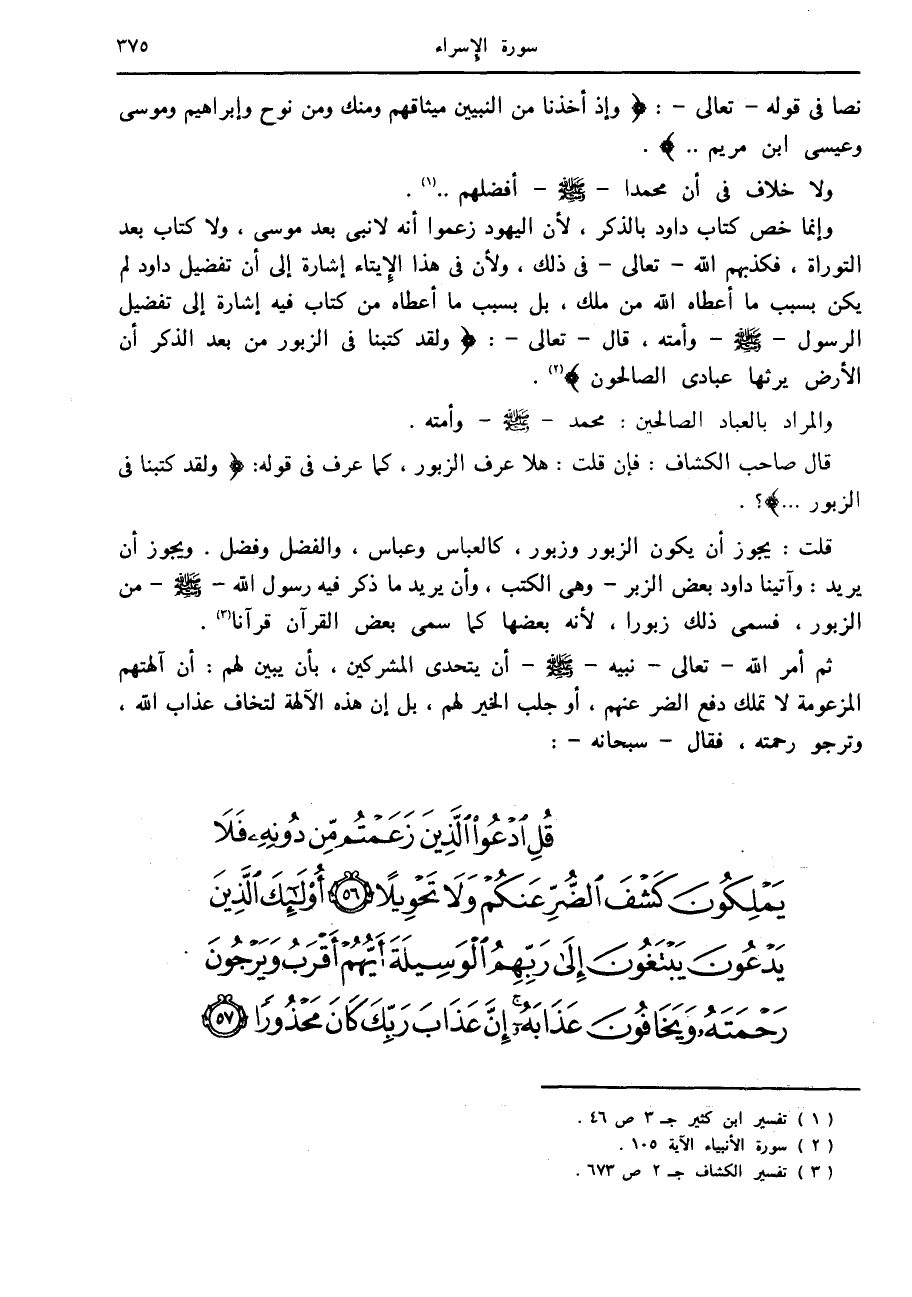 سورة الإسراء ٣٧٥
نصا فى قوله - تعالى - : ﴿ وإذ أخذنا من النبيين ميثاقهم ومنك ومن نوح وإبراهيم وموسى
وعيسى ابن مريم .. ﴾ .
ولا خلاف فى أن محمدا - ﷺ - أفضلهم ..(١) .
وإنما خص كتاب داود بالذكر ، لأن اليهود زعموا أنه لانبى بعد موسى ، ولا كتاب بعد
التوراة ، فكذبهم الله - تعالى - فى ذلك ، ولأن فى هذا الإيتاء إشارة إلى أن تفضيل داود لم
يكن بسبب ما أعطاه الله من ملك ، بل بسبب ما أعطاه من كتاب فيه إشارة إلى تفضيل
الرسول - ﷺ - وأمته ، قال - تعالى - : ﴿ ولقد كتبنا فى الزبور من بعد الذكر أن
الأرض يرثها عبادى الصالحون ﴾(٢) .
والمراد بالعباد الصالحين : محمد - ﷺ - وأمته .
قال صاحب الكشاف : فإن قلت : هلا عرف الزبور ، كما عرف فى قوله: ﴿ ولقد كتبنا فى
الزبور ...﴾؟ .
قلت : يجوز أن يكون الزبور وزبور ، كالعباس وعباس ، والفضل وفضل . ويجوز أن
يريد : وآتينا داود بعض الزبر - وهى الكتب ، وأن يريد ما ذكر فيه رسول الله - ﷺ - من
الزبور ، فسمى ذلك زبورا ، لأنه بعضها كما سمى بعض القرآن قرآنا(٣) .
ثم أمر الله - تعالى - نبيه - ﷺ - أن يتحدى المشركين ، بأن يبين لهم : أن آلهتهم
المزعومة لا تملك دفع الضر عنهم ، أو جلب الخير لهم ، بل إن هذه الآلهة لتخاف عذاب الله ،
وترجو رحمته ، فقال - سبحانه - :
قُلِ ٱدْعُوا۟ ٱلَّذِينَ زَعَمْتُم مِّن دُونِهِۦ فَلَا
يَمْلِكُونَ كَشْفَ ٱلضُّرِّ عَنكُمْ وَلَا تَحْوِيلًا ٥٦ أُو۟لَٰٓئِكَ ٱلَّذِينَ
يَدْعُونَ يَبْتَغُونَ إِلَىٰ رَبِّهِمُ ٱلْوَسِيلَةَ أَيُّهُمْ أَقْرَبُ وَيَرْجُونَ
رَحْمَتَهُۥ وَيَخَافُونَ عَذَابَهُۥٓ ۚ إِنَّ عَذَابَ رَبِّكَ كَانَ مَحْذُورًا ٥٧
( ١ ) تفسير ابن كثير جـ ٣ ص ٤٦ .
( ٢ ) سورة الأنبياء الآية ١٠٥ .
( ٣ ) تفسير الكشاف جـ ٢ ص ٦٧٣ .